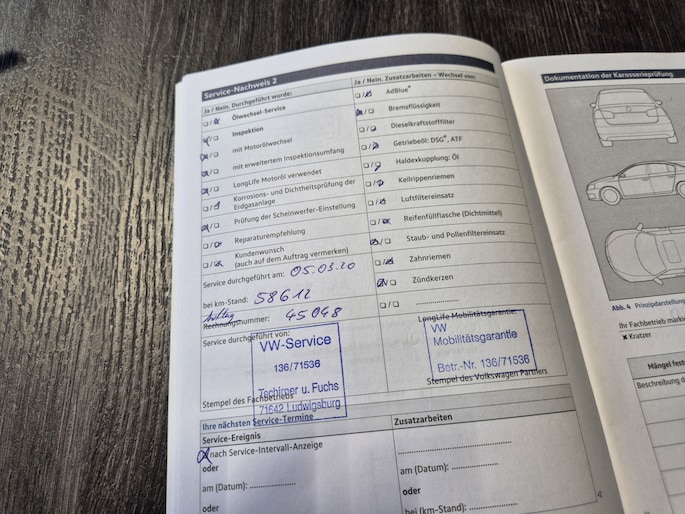 Service-Nachweis 2
Ja / Nein. Durchgeführt wurde:
Ölwechsel-Service
Inspektion
mit Motorölwechsel
mit erweitertem Inspektionsumfang
LongLife Motoröl verwendet
Korrosions- und Dichtheitsprüfung der
Erdgasanlage
Prüfung der Scheinwerfer-Einstellung
Reparaturempfehlung
Kundenwunsch
(auch auf dem Auftrag vermerken)
Service durchgeführt am: 05.03.20
bei km-Stand: 58612
Auftrag
Rechnungsnummer: 45048
Service durchgeführt von:
VW-Service
136/71536
Tschirner u. Fuchs
71642 Ludwigsburg
Stempel des Fachbetriebs
Ja / Nein. Zusatzarbeiten – Wechsel von:
AdBlue®
Bremsflüssigkeit
Dieselkraftstofffilter
Getriebeöl: DSG®, ATF
Haldexkupplung: Öl
Keilrippenriemen
Luftfiltereinsatz
Reifenfüllflasche (Dichtmittel)
Staub- und Pollenfiltereinsatz
Zahnriemen
Zündkerzen
LongLife Mobilitätsgarantie:
VW
Mobilitätsgarantie
Betr.-Nr. 136/71536
Stempel des Volkswagen Partners
Ihre nächsten Service-Termine
Service-Ereignis
nach Service-Intervall-Anzeige
oder
am (Datum): ................
oder
Zusatzarbeiten
am (Datum): ................
oder
bei (km-Stand): ............
Dokumentation der Karosserieprüfung
Abb. 4 Prinzipdarstellung
Ihr Fachbetrieb
✖ Kratzer
Mängel
Beschreibung